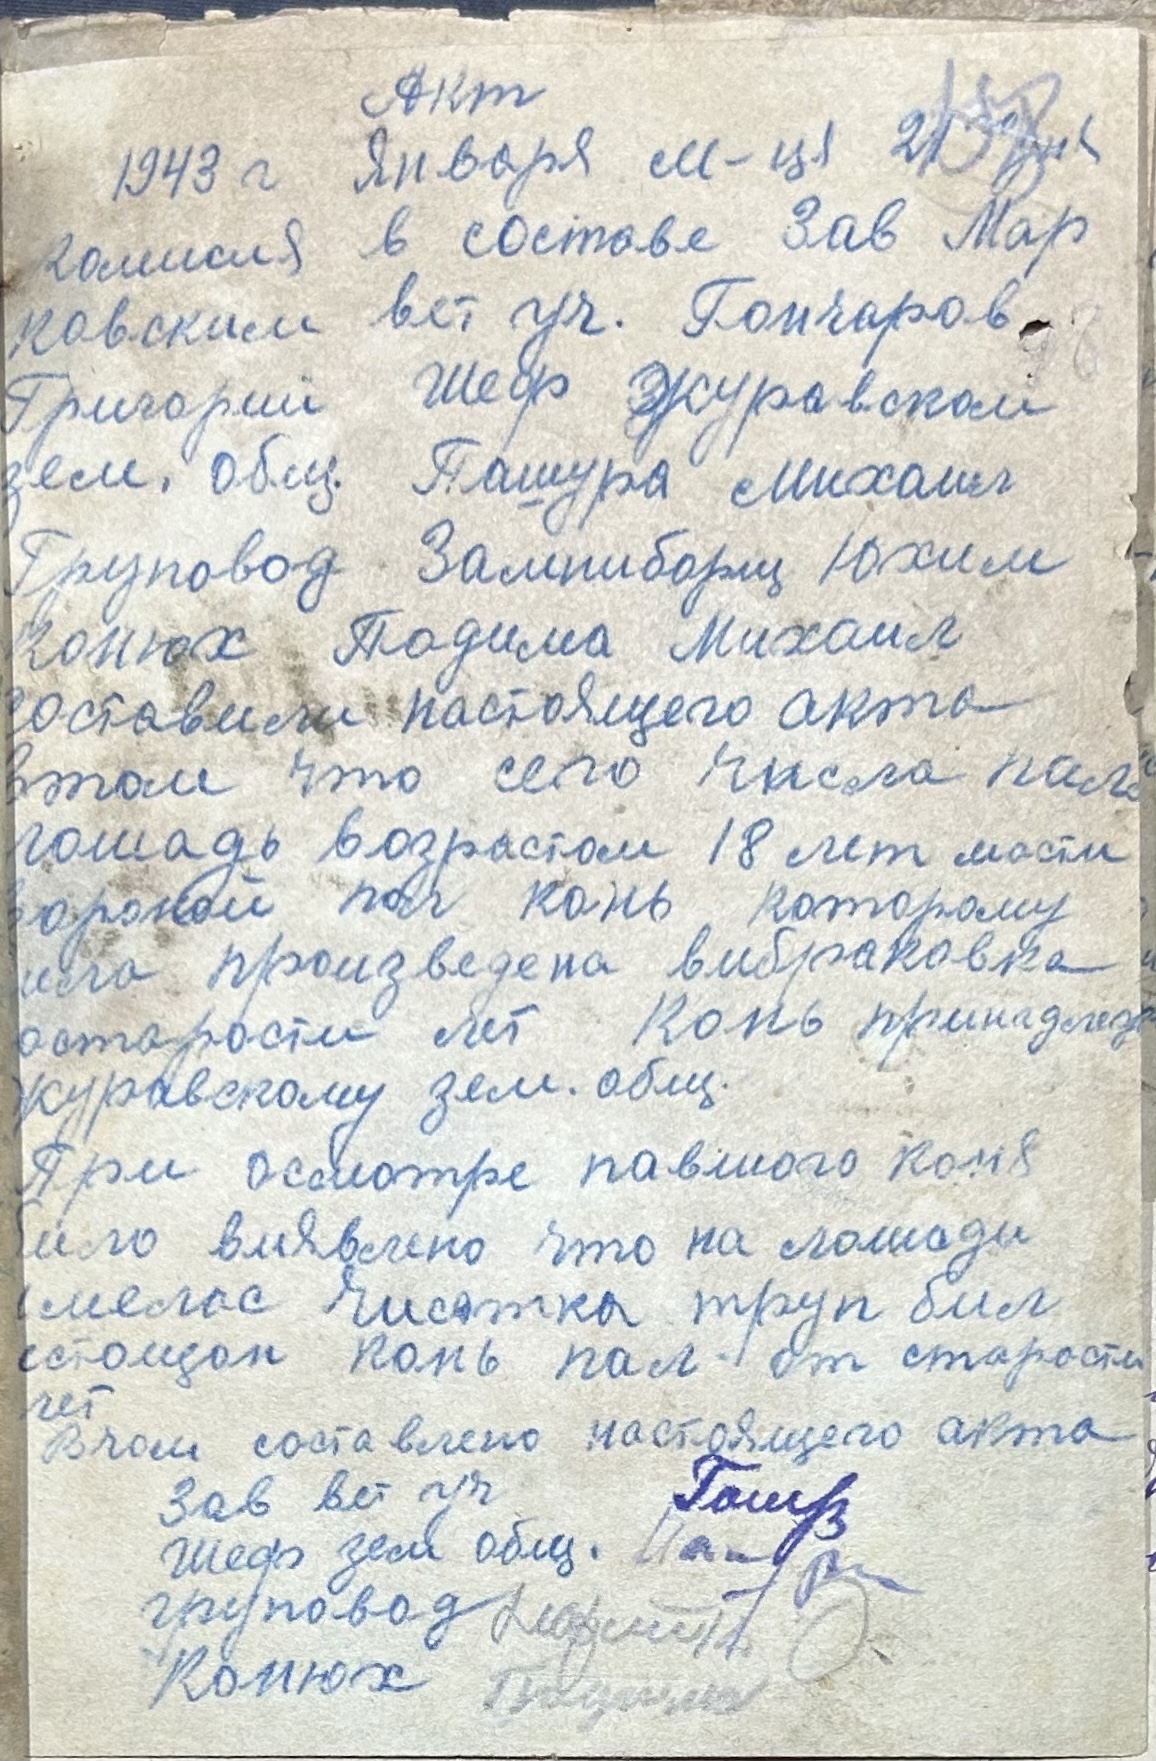 Акт
1943 г Января м-ця 21 дня
комисия в составе Зав Мар
ковским вет уч. Гончаров
Григорий Шеф Журавской
зем. общ. Пашура Михаил
Груповод Зампиборщ Юхим
Конюх Подима Михаил
составили настоящего акта
втом что сего числа пала
лошадь возрастом 18 лет масти
вороной пал конь которому
била произведена вибраковка
остарости лет Конь принадлеж
журавскому зем. общ.
При осмотре павшого коня
било виявлено что на лошади
имелас Чисотка труп бил
истощон конь пал от старости
лет
Вчом составлено настоящего акта
Зав вет уч
Шеф зем общ.
груповод
Конюх Подима